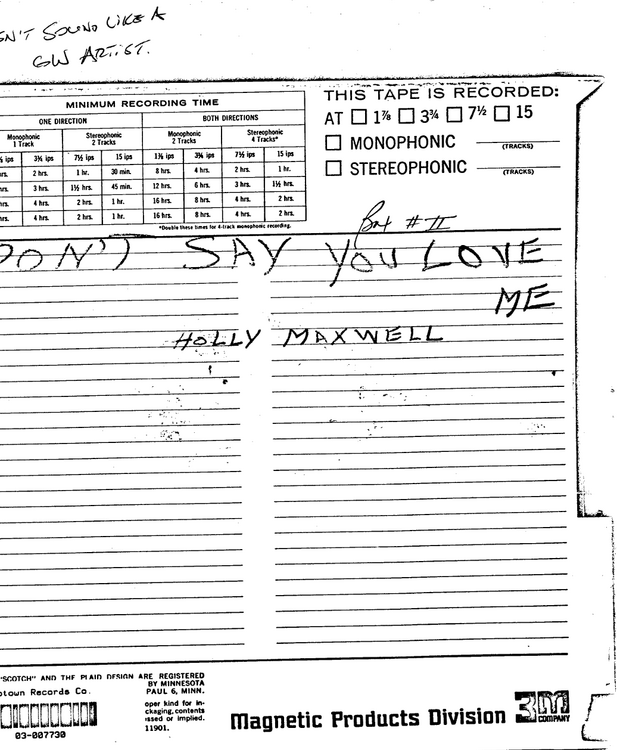 SN'T SOUND LIKE A
GW ARTIST.
MINIMUM RECORDING TIME
ONE DIRECTION BOTH DIRECTIONS
Monophonic 1 Track Stereophonic 2 Tracks Monophonic 2 Tracks Stereophonic 4 Tracks*
¾ ips 3¾ ips 7½ ips 15 ips 1⅞ ips 3¾ ips 7½ ips 15 ips
hrs. 2 hrs. 1 hr. 30 min. 8 hrs. 4 hrs. 2 hrs. 1 hr.
hrs. 3 hrs. 1½ hrs. 45 min. 12 hrs. 6 hrs. 3 hrs. 1½ hrs.
hrs. 4 hrs. 2 hrs. 1 hr. 16 hrs. 8 hrs. 4 hrs. 2 hrs.
hrs. 4 hrs. 2 hrs. 1 hr. 16 hrs. 8 hrs. 4 hrs. 2 hrs.
*Double these times for 4-track monophonic recording.
THIS TAPE IS RECORDED:
AT 1⅞ 3¾ 7½ 15
MONOPHONIC (TRACKS)
STEREOPHONIC (TRACKS)
Box # II
DON'T SAY YOU LOVE
ME
HOLLY MAXWELL
"SCOTCH" AND THE PLAID DESIGN ARE REGISTERED
BY MINNESOTA
PAUL 6, MINN.
otown Records Co.
oper kind for in-
ckaging, contents
ssed or implied.
11901.
03-007730
Magnetic Products Division 3M COMPANY